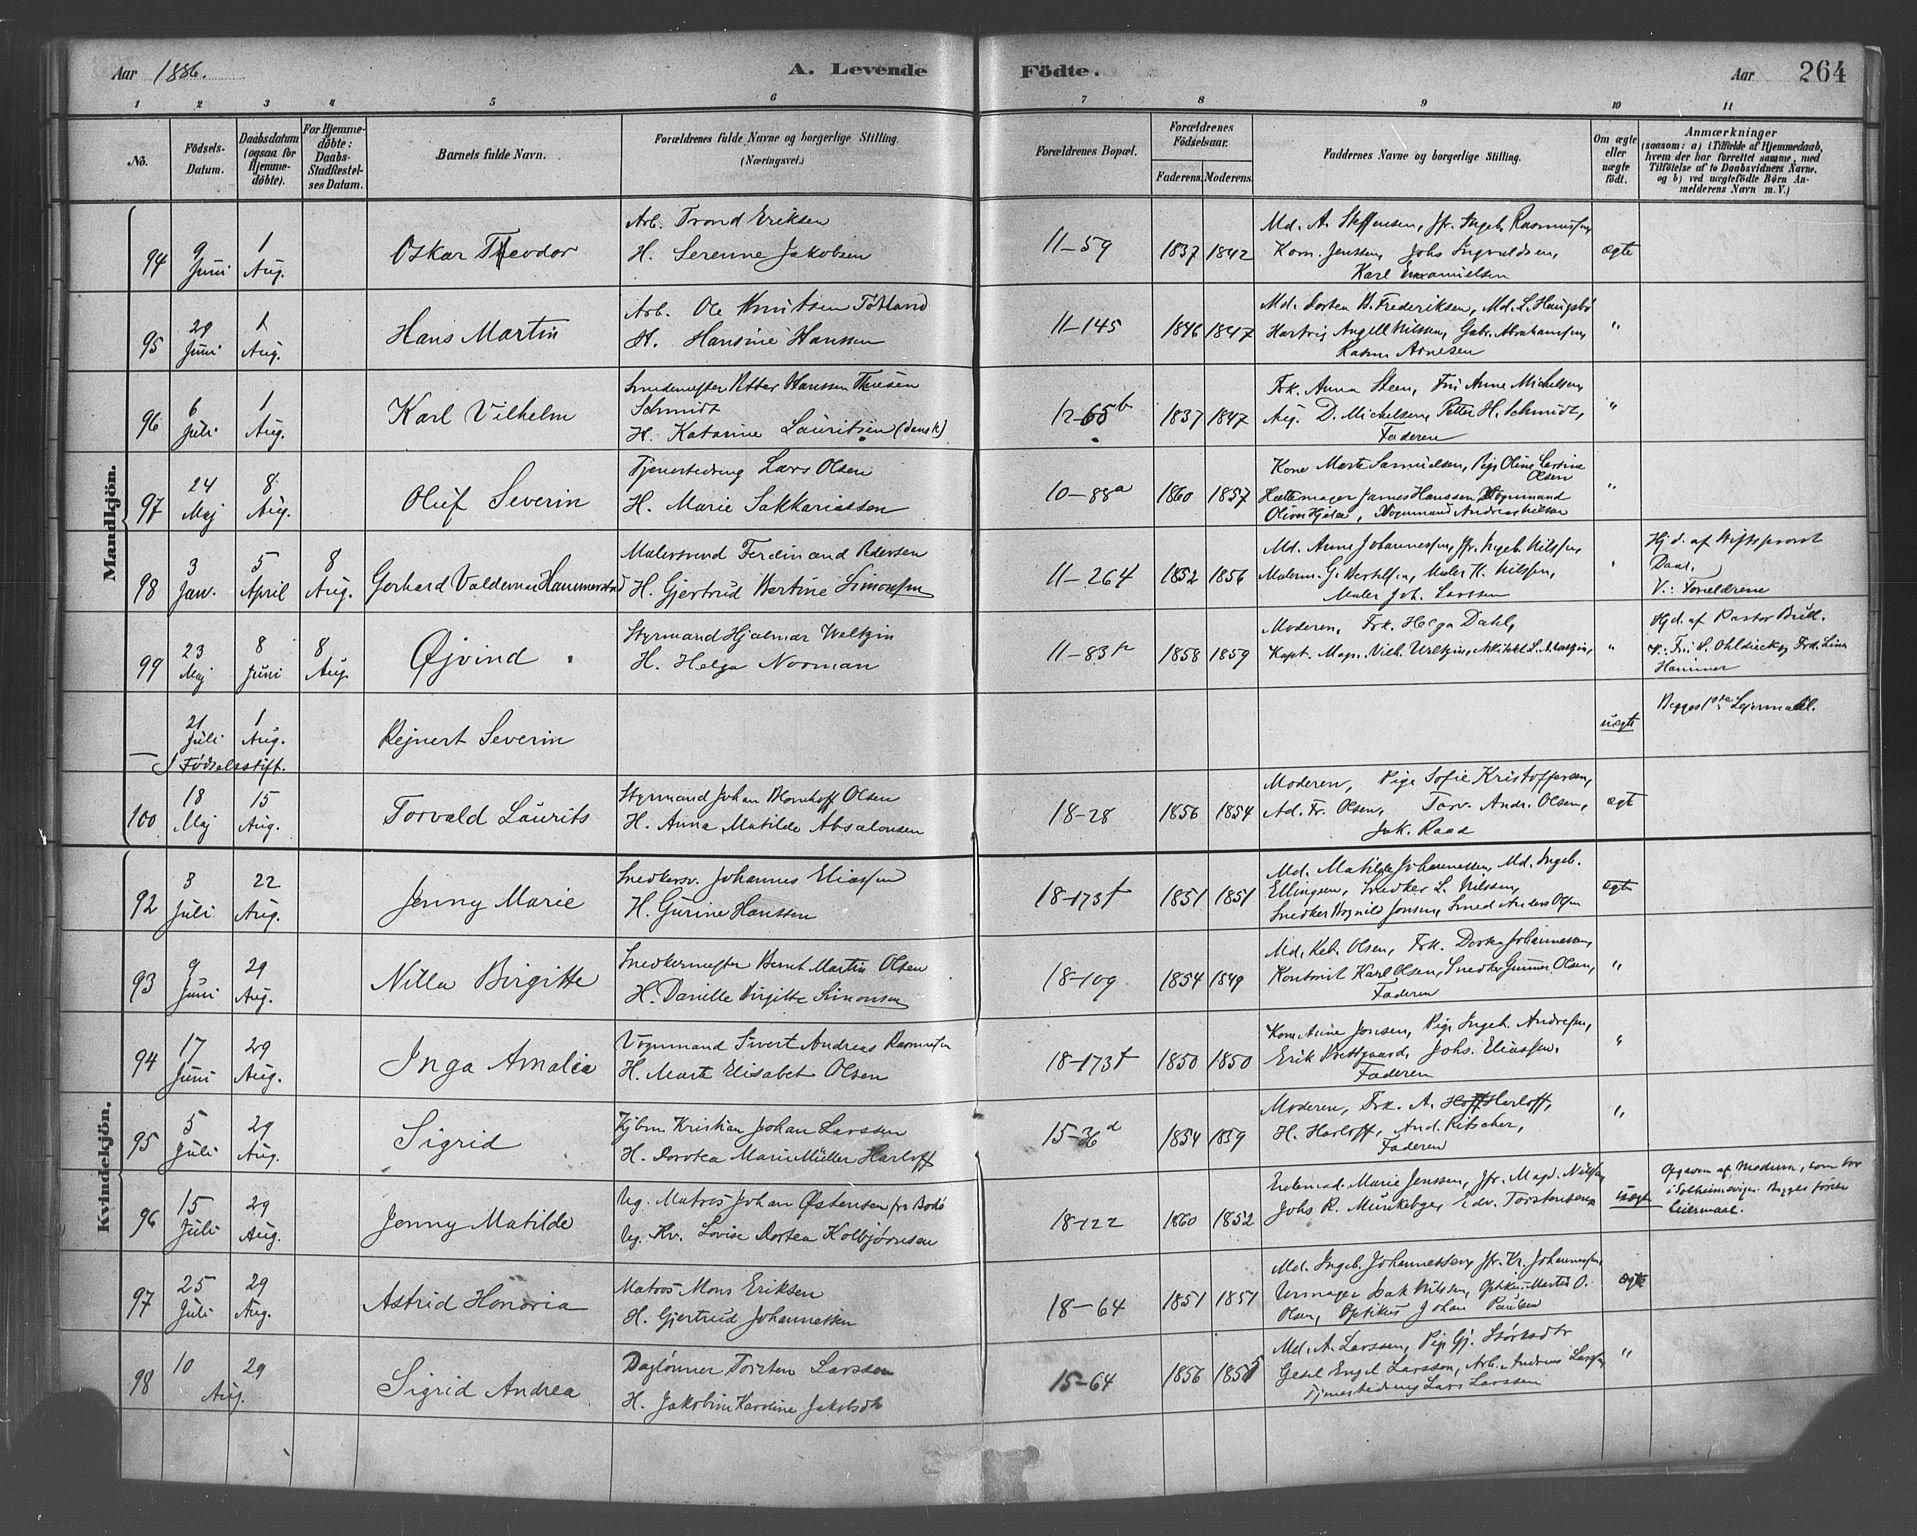 Aar 1886. A. Levende Födte. Aar 264
1 2 3 4 5 6 7 8 9 10 11
No. Födsels-Datum. Daabsdatum (ogsaa for Hjemme-döbte). For Hjemme-döbte: Daabs-Stadfæstel-ses Datum. Barnets fulde Navn. Forældrenes fulde Navne og borgerlige Stilling. (Næringsvei.) Forældrenes Bopæl. Forældrenes Födselsaar. Faderens. Moderens. Faddernes Navne og borgerlige Stilling. Om ægte eller uægte födt. Anmærkninger (saasom: a) i Tilfælde af Hjemmedaab, hvem der har forrettet samme, med Tilföielse af to Daabsvidners Navne. og b) ved uægtefödte Börn An-melderens Navn m. V.)
Mandkjön.
94 9 Juni 1 Aug. Oskar Theodor
Arb. Trond Eriksen
H. Serenne Jakobsen
11-59 1837 1842
Md. A. Steffensen, Jfr. Ingeb. Rasmussen,
Kom. Jenssen, Johs Ingvaldsen,
Karl Emanuelsen
ægte
95 29 Juni 1 Aug. Hans Martin
Arb. Ole Knutsen
H. Hansine Hanssen
11-145 1846 1847
Md. Dortea B. Frederiksen, Md. L. Haugsbø
Hartvig Angell Nilssen, Gabr. Abrahamsen,
Rasm. Arnesen
"
96 6 Juli 1 Aug. Karl Vilhelm
Smedemester Petter Hanssen Thuesen
Schmidt
H. Katarine Lauritsen (dansk)
12-65b 1837 1847
Frk. Anna Steen, Fru Anne Michelsen,
Aug. D. Michelsen, Petter H. Schmidt,
Faderen
"
97 24 Maj 8 Aug. Oluf Severin
Tjenestedreng Lars Olsen
H. Marie Sakkariassen
10-88a 1860 1857
Kone Marte Samuelsen, Pige Oline Lartine
Olsen
Hattemager James Hanssen, Vognmand
Oliver Hjelle, Vognmand Andreas Nilsen
"
98 3 Jan. 5 April 8 Aug. Gerhard Valdemar Hammerstad
Malersvend Ferdinand Pedersen
H. Gjertrud Bertine Simonsen
11-264 1852 1856
Md. Anne Johannessen, Jfr. Ingeb. Nilssen,
Malerm. G. Bertelsen, Maler K. Nilssen,
Maler Joh. Larssen
"
Hjd. af Stiftsprovst
Daae.
V.: Forældrene
99 23 Maj 8 Juni 8 Aug. Øjvind
Styrmand Hjalmar Weltzin
H. Helga Norman
11-83 1858 1859
Moderen, Frk. Helga Dahl,
Kapt. Magn. Vilh. Weltzin, Arkitekt
"
Hjd. af Pastor Bull.
V.: Fru S. Ohldieck og Frk. Lina
Hammer
21 Juli 1 Aug. Rejnert Severin
uægte
Begges 1ste Lejermaal.
Födselsstift.
100 18 Maj 15 Aug. Torvald Laurits
Styrmand Johan Blomhoff Olsen
H. Anna Matilde Absalonsen
18-28 1856 1854
Moderen, Pige Sofie Kristoffersen,
Ad. Fr. Olsen, Torv. Andr. Olsen,
Jak. Raad
ægte
Kvindekjön.
92 3 Juli 22 Aug. Jenny Marie
Snedkersv. Johannes Eliassen
H. Gurine Hanssen
18-173f 1851 1851
Md. Matilde Johannessen, Md. Ingeb.
Ellingsen, Snedker L. Nilssen,
Snedker Jonsen, Smed Anders Olsen
ægte
93 9 Juni 29 Aug. Nilla Birgitte
Snedkermester Bernt Martin Olsen
H. Danille Birgitte Simonsen
18-109 1854 1849
Md. Kat. Olsen, Frk. Dorthea Johannessen,
Kontorist Karl Olsen, Snedker Gunner Olsen,
Faderen
"
94 17 Juni 29 Aug. Inga Amalia
Vognmand Sivert Andreas Rasmussen
H. Marte Elisabet Olsen
18-173f 1850 1850
Kone Anne Jonsen, Pige Ingeb. Andresen,
Erik Brettgaard, Johs. Eliassen,
Faderen
"
95 5 Juli 29 Aug. Sigrid
Kjbm Kristian Johan Larssen
H. Dorotea Marie Müller Harloff
15-36d 1854 1859
Moderen, Frk. A. Hoff Harloff,
H. Harloff, And. Ritscher,
Faderen
"
96 15 Juli 29 Aug. Jenny Matilde
Ug. Matros Johan Østensen fra Bodø
Ug. Kv. Lovise Dortea Kolbjørnsen
18-122 1860 1852
Marie Jenssen, Jfr. Magd. Nilssen
Johs R. Munkebye, Edv. Torstensen
uægte
Opgaven af Moderen, som bor
i Solheimsvigen. Begges første
Leiermaal.
97 25 Juli 29 Aug. Astrid Honoria
Matros Mons Eriksen
H. Gjertrud Johannessen
18-64 1851 1851
Md. Ingeb. Johannessen, Jfr. Kr. Johannessen,
Urmager Isak Nilsen, Optikus Martin O.
Olsen, Optikus Johan Paulsen
ægte
98 10 29 Aug. Sigrid Andrea
Daglønner Torsten Larssen
H. Jakobine Karoline Jakobsdtr
15-64 1856 1855
Md. A. Larssen, Pige Gj. Størksdtr
Gesel Engel Larssen, Arb. Andreas Larssen,
Tjenestedreng Lars Larssen
"